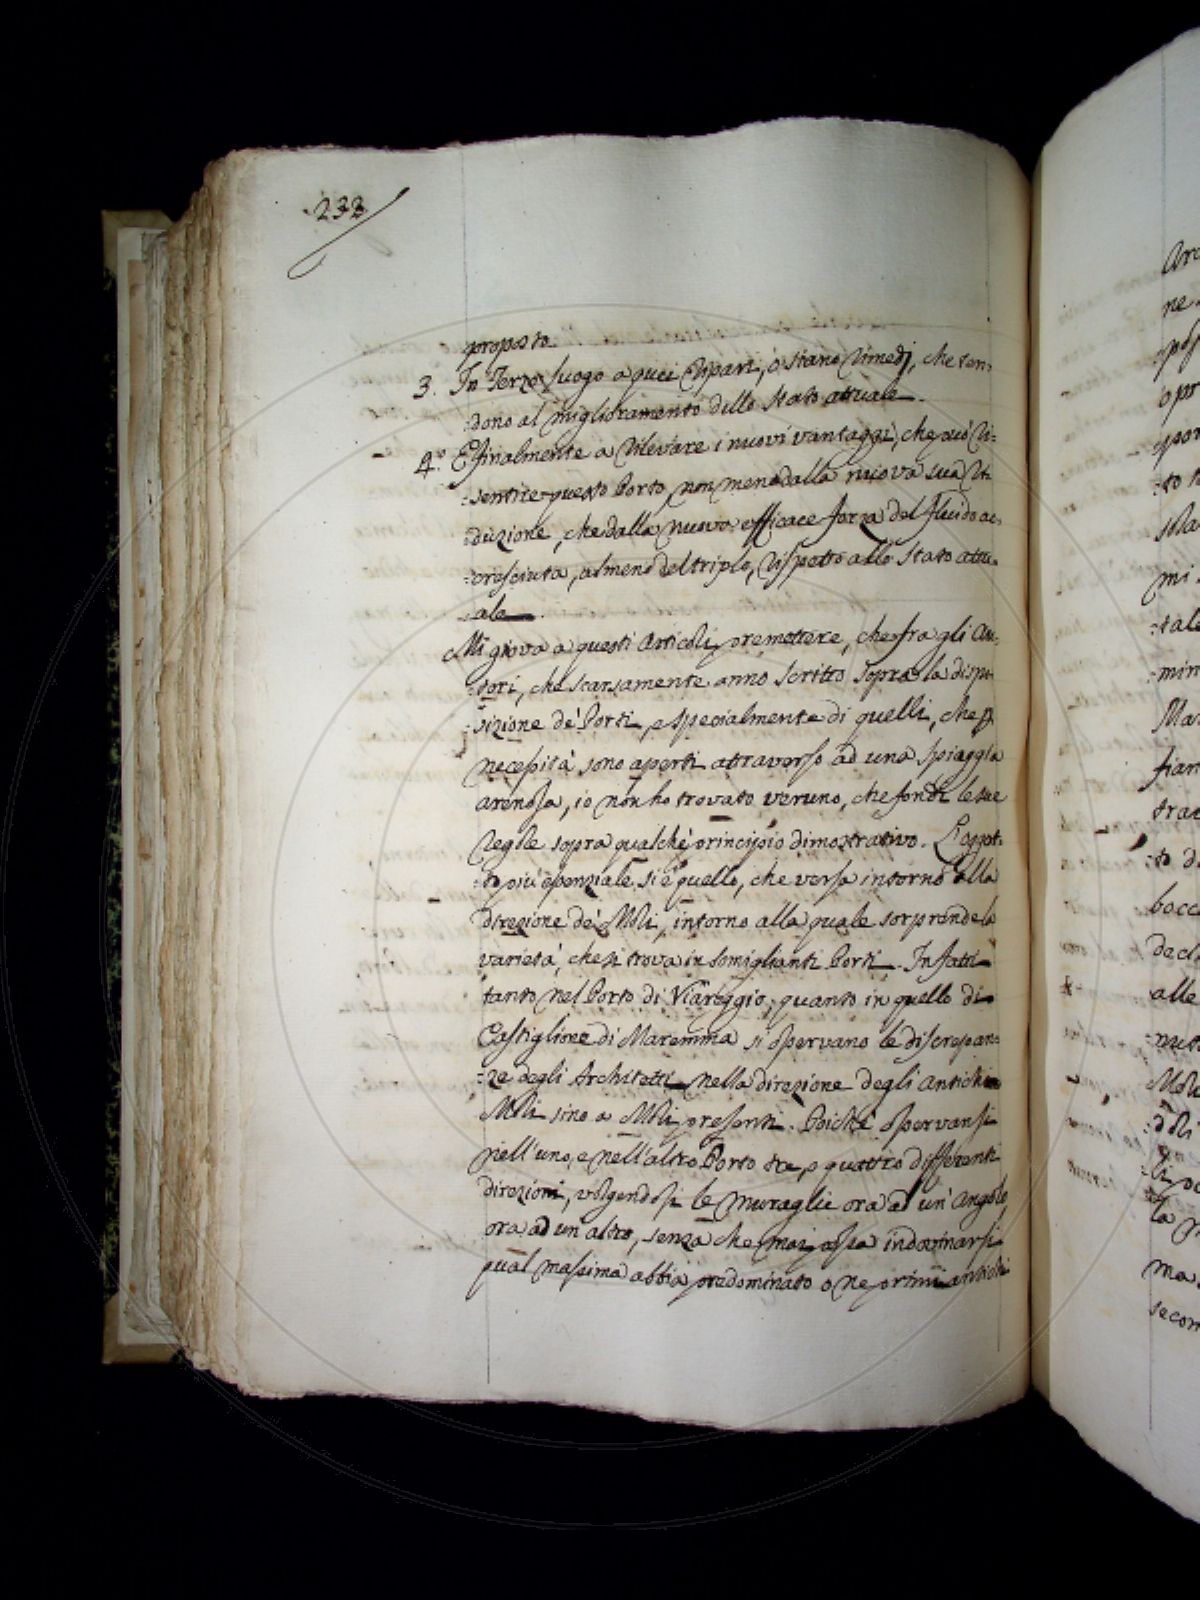 232
proposto.
3. In Terzo luogo a quei ripari, o siano rimedj, che ten-
:dono al miglioramento dello Stato attuale.
4.° E finalmente a rilevare i nuovi vantaggi, che può ri=
:sentire questo Porto, non meno dalla nuova sua ri-
:duzione, che dalla nuova efficace forza del fluido ac-
:cresciuta, almeno del triplo, rispetto allo Stato attu-
:ale.
Mi giova a questi Articoli premettere, che fra gli Au-
:tori, che scarsamente anno scritto sopra la dispo-
:sizione de' Porti, e specialmente di quelli, che p
necessità sono aperti attraverso ad una spiaggia
arenosa, io non ho trovato veruno, che fondi le sue
regole sopra qualche principio dimostrativo. L'ogget-
:to più essenziale si è quello, che versa intorno alla
direzione de' Moli, intorno alla quale sorprende la
varietà, che si trova in somiglianti Porti. In fatti
tanto nel Porto di Viareggio, quanto in quello di
Castiglione di Maremma si osservano le discrepan=
:ze degli Architetti nella direzione degli antichi
Moli sino a Moli presenti. Poichè osservansi
nell'uno, e nell'altro Porto tre, o quattro differenti
direzioni, volgendosi le muraglie ora ad un'angolo,
ora ad un altro, senza che mai possa indovinarsi
qual massima abbia predominato o ne primi antichi
Arc
ne
opr
spor
:to
mi
:tale
min
Mar
fian
trat
:to d
bocc
decl
alle
:nut
Mol
la
ma
secon